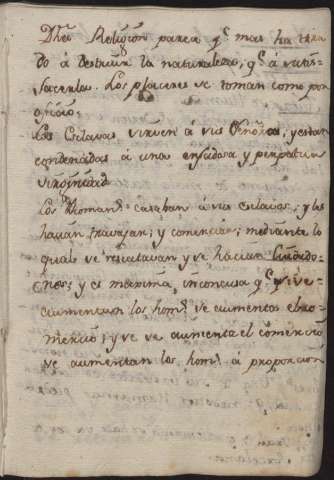 Dha Religion parea q.e mas ha tira
do á destruir la naturaleza, q.e á satis=
facerla. Los placeres se toman como pen
Las Esclavas sirven á sus Señoras, y estan
condenadas á una enfadosa y perpetua
virginidad
Los Roman.s casaban á sus esclavos; y les
hacian travajar; y comerciar; mediante lo
qual se rescatavan y se hacian Ciudada=
nos; y es maxima inconcusa q.e si se
aumentan los hom.s se aumenta el co
mercio; y si se aumenta el comercio
se aumentan los hom.s á proporcion